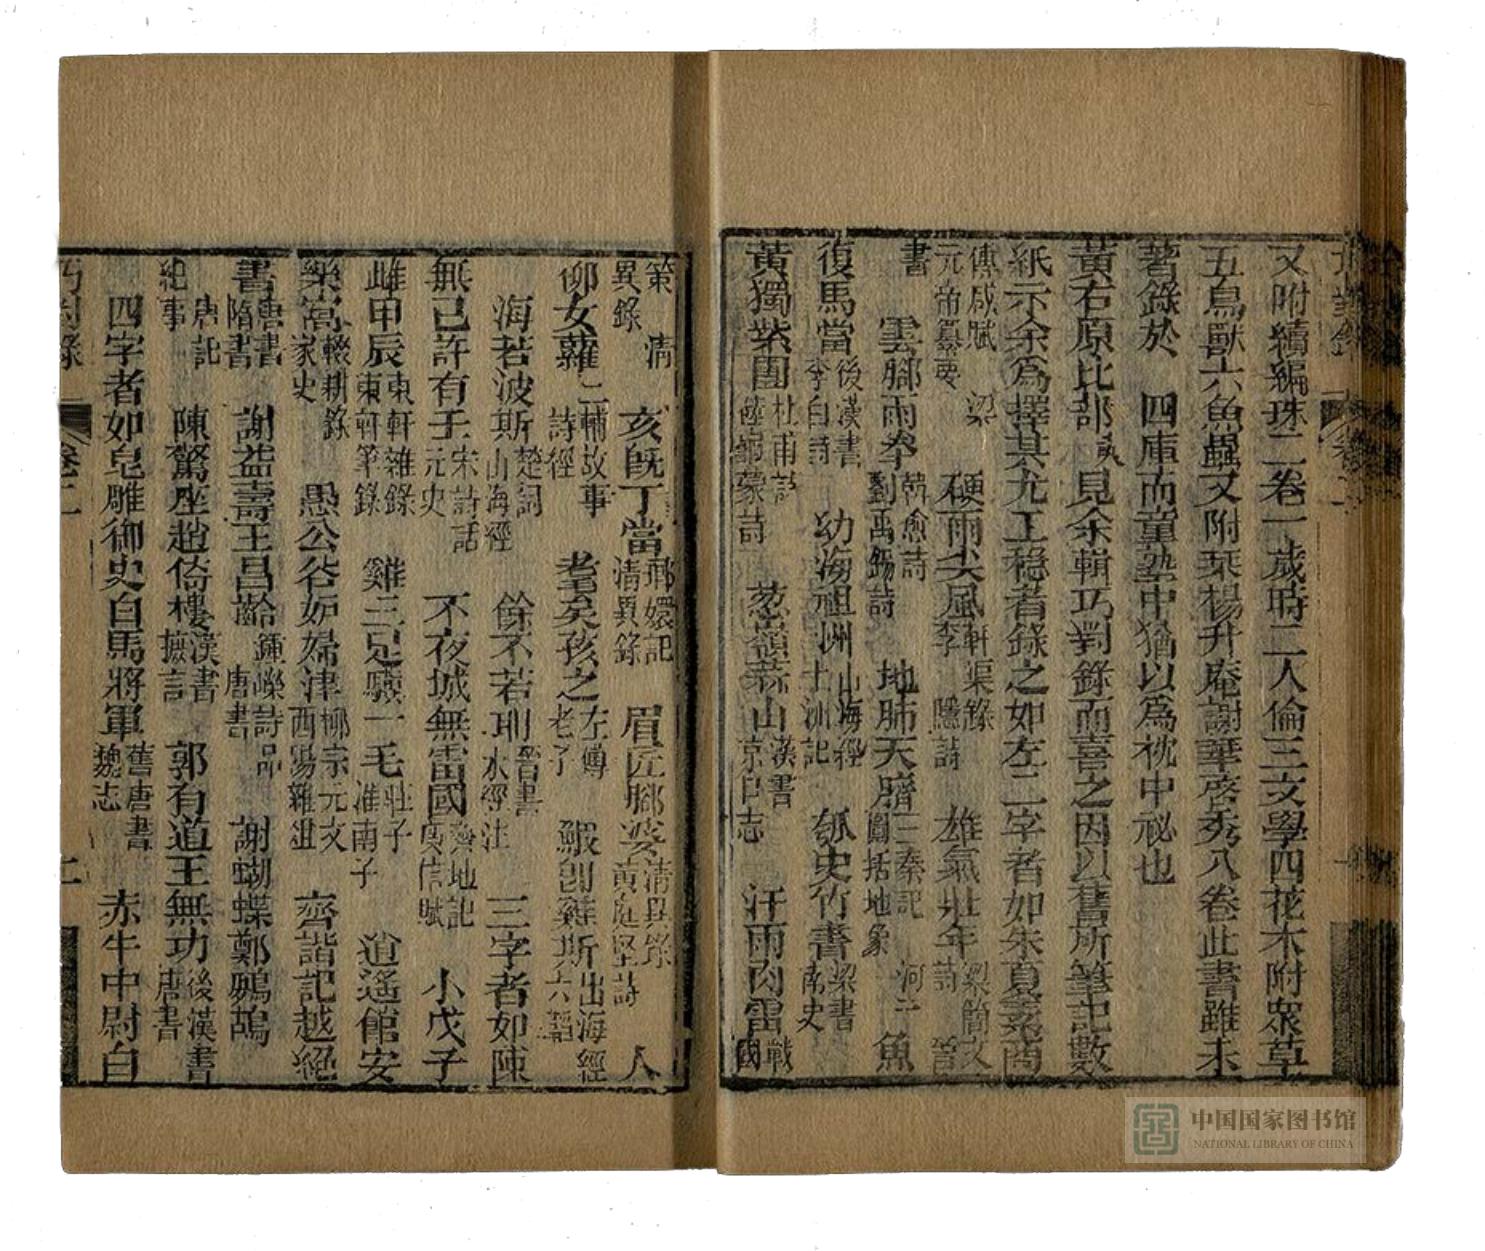 又附續編珠二卷一歲時二人倫三文學四花木附衆草
五鳥獸六魚蟲又附琹楊升庵謝華啓秀八卷此書雖未
著錄於 四庫而童塾中猶以爲枕中祕也
黃右原比部奭見余輯巧對錄而喜之因以舊所筆記數
紙示余爲擇其尤工穩者錄之如左二字者如朱夏素商
傅咸賦 梁元帝纂要 硬雨尖風軒渠錄 李隱詩 雄氣壯年梁簡文詩 晉
書 雲腳雨拳韓愈詩 劉禹錫詩 地肺天臍三秦記 河 圖括地象 魚
復馬當後漢書 李白詩 幼海祖州山海經 十洲記 郇史竹書梁書 南史
黃獨紫團杜甫詩 蒙詩 葱嶺蒜山漢書 京口志 汗雨肉雷戰國
策 清異錄 亥旣丁當瑯嬛記 清異錄 眉匠腳婆清異錄 黃庭堅詩 人
柳女蘿二輔故事 詩經 耄矣孩之左傳 老子 鰕卽雞斯出海經 六韜
海若波斯楚詞 山海經 餘不若耶晉書 水經注 三字者如陳
無己許有壬宋詩話 元史 不夜城無雷國齊地記 庾信賦 小戊子
雌甲辰東軒雜錄 東軒筆錄 雞三足驥一毛莊子 淮南子 逍遙館安
樂窩輟耕錄 家史 愚公谷妒婦津柳宗元文 酉陽雜俎 齊諧記越絕
書唐書 隋書 謝益壽王昌齡鍾嶸詩品 唐書 謝蝴蝶鄭鷓鴣
唐記 絕事 陳驚座趙倚樓漢書 摭言 郭有道王無功後漢書 唐書
四字者如皂雕御史白馬將軍舊唐書 魏志 赤牛中尉白
巧對錄 卷二 二
中国国家图书馆
NATIONAL LIBRARY OF CHINA